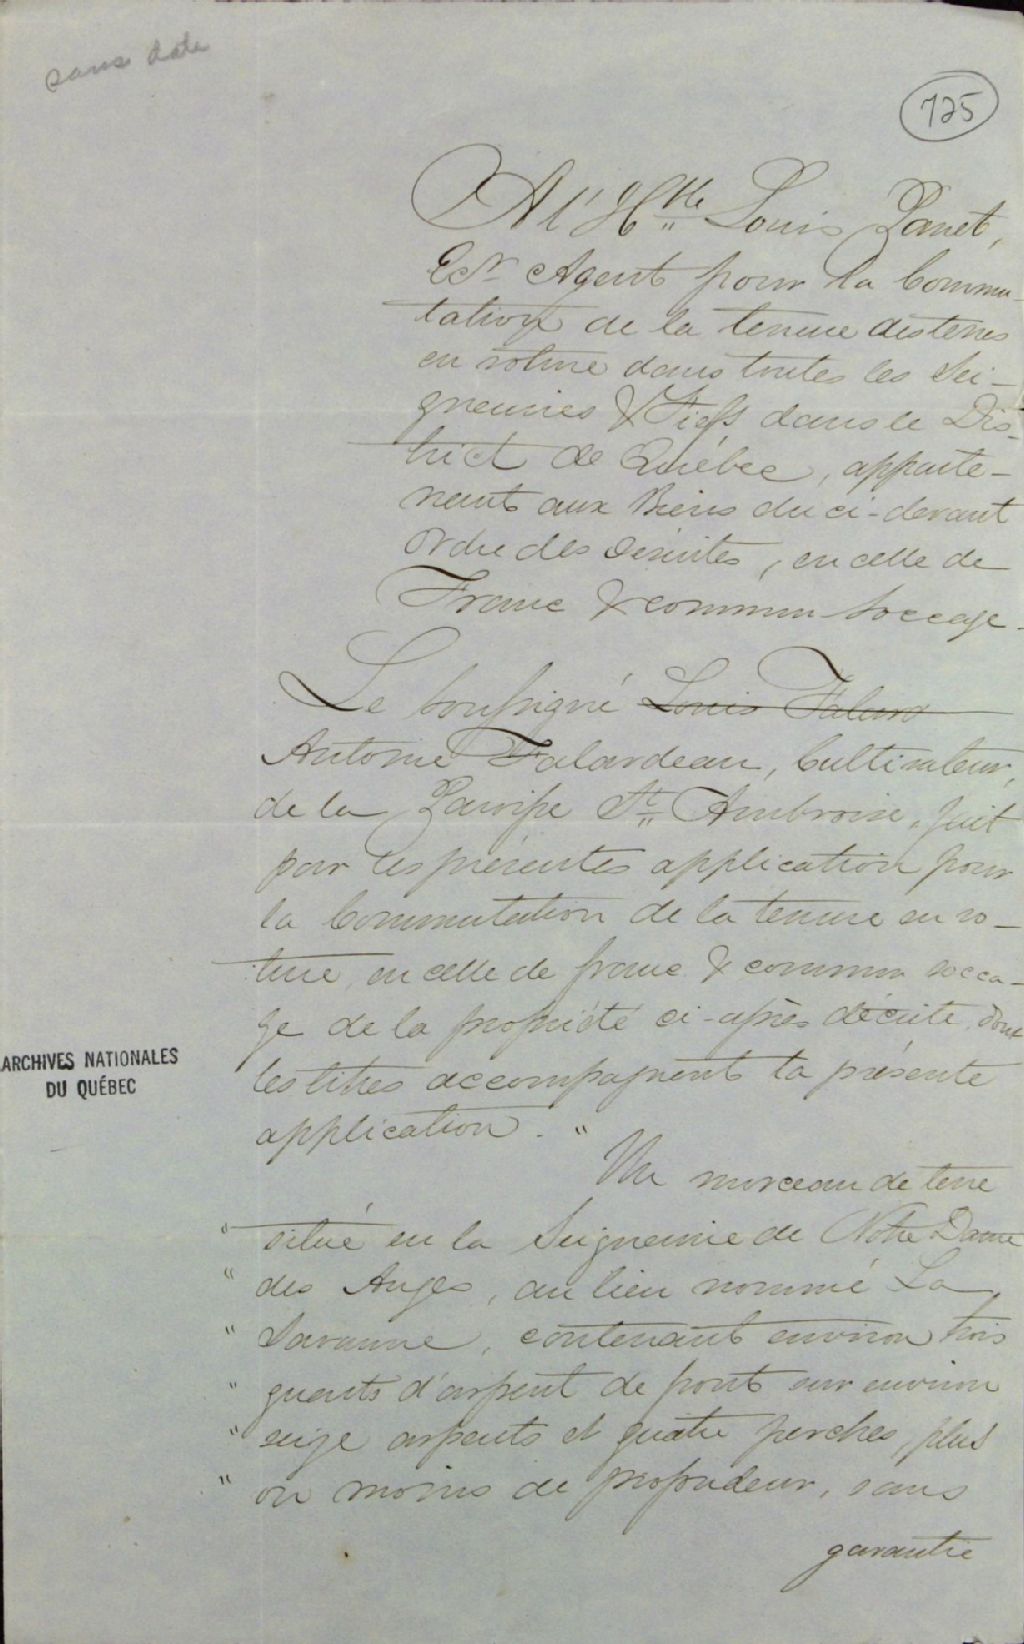 sans date
125
A l'Hble Louis Panet,
Ecr Agent pour la Commu-
tation de la tenure des terres
en roture dans toutes les Sei-
gneuries & Fiefs dans le Dis-
trict de Québec, apparte-
nants aux Biens du ci-devant
Ordre des Jésuites, en celle de
Franc & commun Soccage.
Le Soussigné Louis Falard
Antoine Falardeau, Cultivateur,
de la Paroisse St Ambroise, fait
par les présentes application pour
la Commutation de la tenure en ro-
ture, en celle de franc & commun socca-
ge de la propriété ci-après décrite, dont
les titres accompagnent la présente
application. "
Un morceau de terre
" situé en la Seigneurie de Notre Dame
" des Anges, au lieu nommé La
" Savanne, contenant environ trois
" quarts d'arpent de front sur environ
" seize arpents et quatre perches, plus
" ou moins de profondeur, sans
garantie
ARCHIVES NATIONALES
DU QUÉBEC